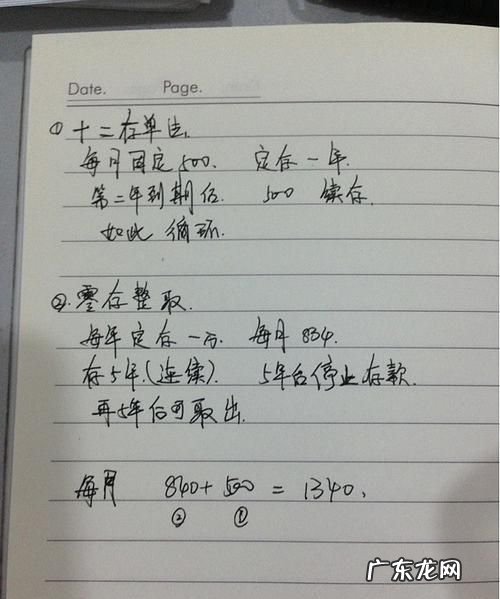 Date. Page.
① 十二存单法.
每月固定500. 定存一年.
第二年到期后. 500 续存.
如此 循环.
②. 零存整取.
每年定存一万. 每月 834.
存5年.(连续). 5年后停止存款.
再5年后可取出.
每月 840+500 = 1340.
② ①
广东龙网